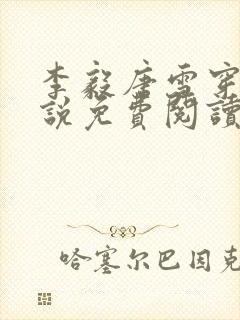 李毅唐雪穿
說免費閱讀
哈塞尔巴因克